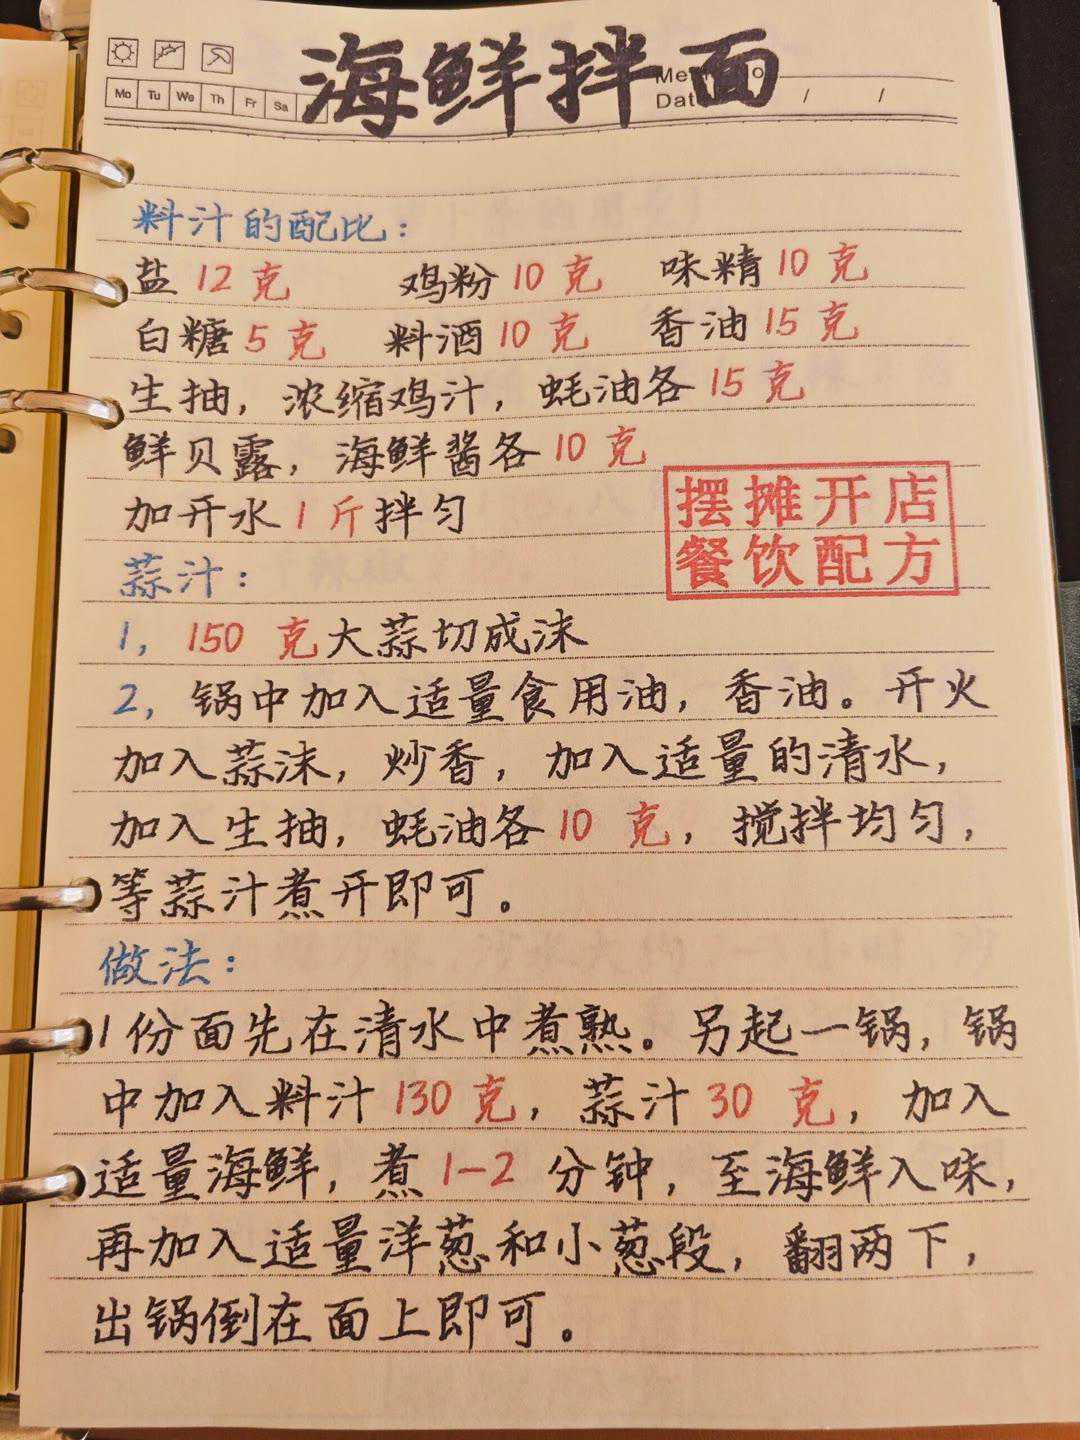 海鲜拌面
Mo Tu We Th Fr Sa
料汁的配比：
盐 12 克 鸡粉 10 克 味精 10 克
白糖 5 克 料酒 10 克 香油 15 克
生抽，浓缩鸡汁，蚝油各 15 克
鲜贝露，海鲜酱各 10 克
加开水 1 斤 拌匀
摆摊开店
餐饮配方
蒜汁：
1，150 克大蒜切成沫
2，锅中加入适量食用油，香油。开火
加入蒜沫，炒香，加入适量的清水，
加入生抽，蚝油各 10 克，搅拌均匀，
等蒜汁煮开即可。
做法：
1份面先在清水中煮熟。另起一锅，锅
中加入料汁 130 克，蒜汁 30 克，加入
适量海鲜，煮 1-2 分钟，至海鲜入味，
再加入适量洋葱和小葱段，翻两下，
出锅倒在面上即可。